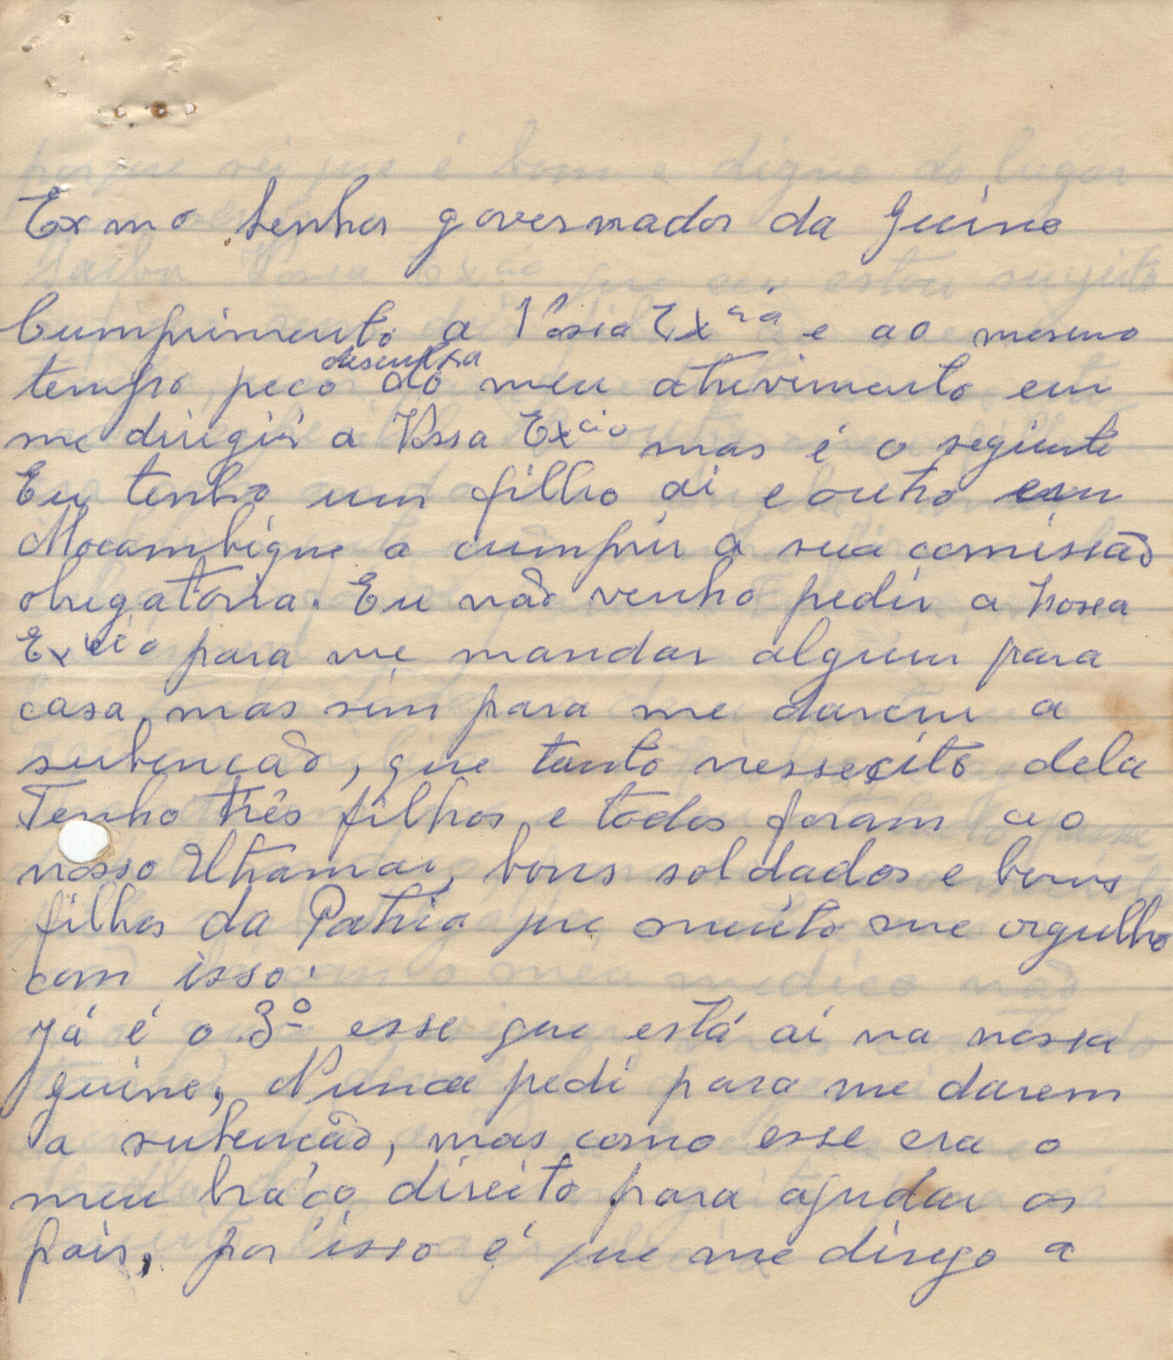 Exmo Senhor governador da Guine
Cumprimento a Vossa Exciá e ao mesmo
desculpa
tempo peco do meu atrevimento em
me dirigir a Vossa Excia mas é o seguinte
Eu tenho um filho ai e outro em
Mocambique a cumprir a sua comissão
obrigatoria. Eu não venho pedir a Vossa
Excia para me mandar algum para
casa, mas sim para me darem a
subencão, que tanto nessecito dela
Tenho três filhos e todos foram ao
nosso Utramar, bons soldados e bons
filhos da Patria que muito me orgulho
com isso.
Já é o 3º esse que está aí na nossa
guine, Nunca pedi para me darem
a subencão, mas como esse era o
meu bráco direito para ajudar os
pais, por isso é que me dirijo a